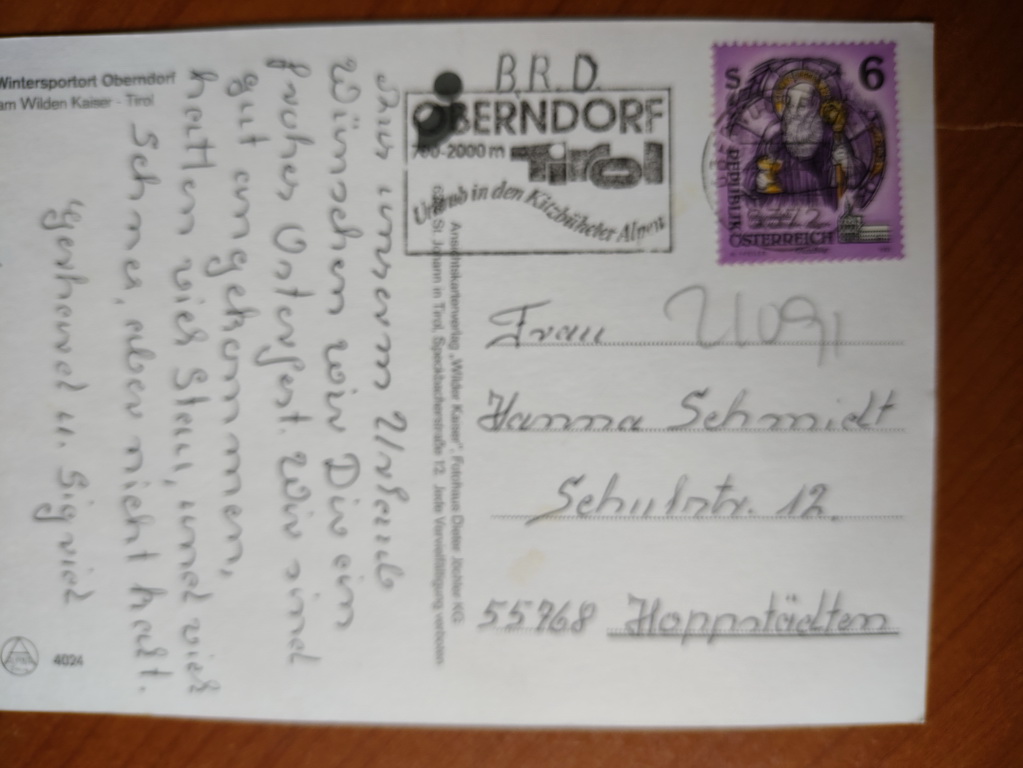 Wintersportort Oberndorf
am Wilden Kaiser - Tirol
Aus unserem Urlaub
Wünschen wir Dir ein
frohes Osterfest. Wir sind
gut angekommen,
hatten viel Stau, und viel
Schnee, aber nicht kalt.
Gerhard u. Sigrid
4024
Ansichtskartenverlag „Wilder Kaiser“, Fotohaus Dieter Jöchler KG
St. Johann in Tirol, Speckbacherstraße 12. Jede Vervielfältigung verboten
B.R.D.
OBERNDORF
700-2000 m Tirol
Urlaub in den Kitzbüheler Alpen
6372
S 6
REPUBLIK
ÖSTERREICH
Frau
Hanna Schmidt
Schulstr. 12.
55768 Hoppstädten